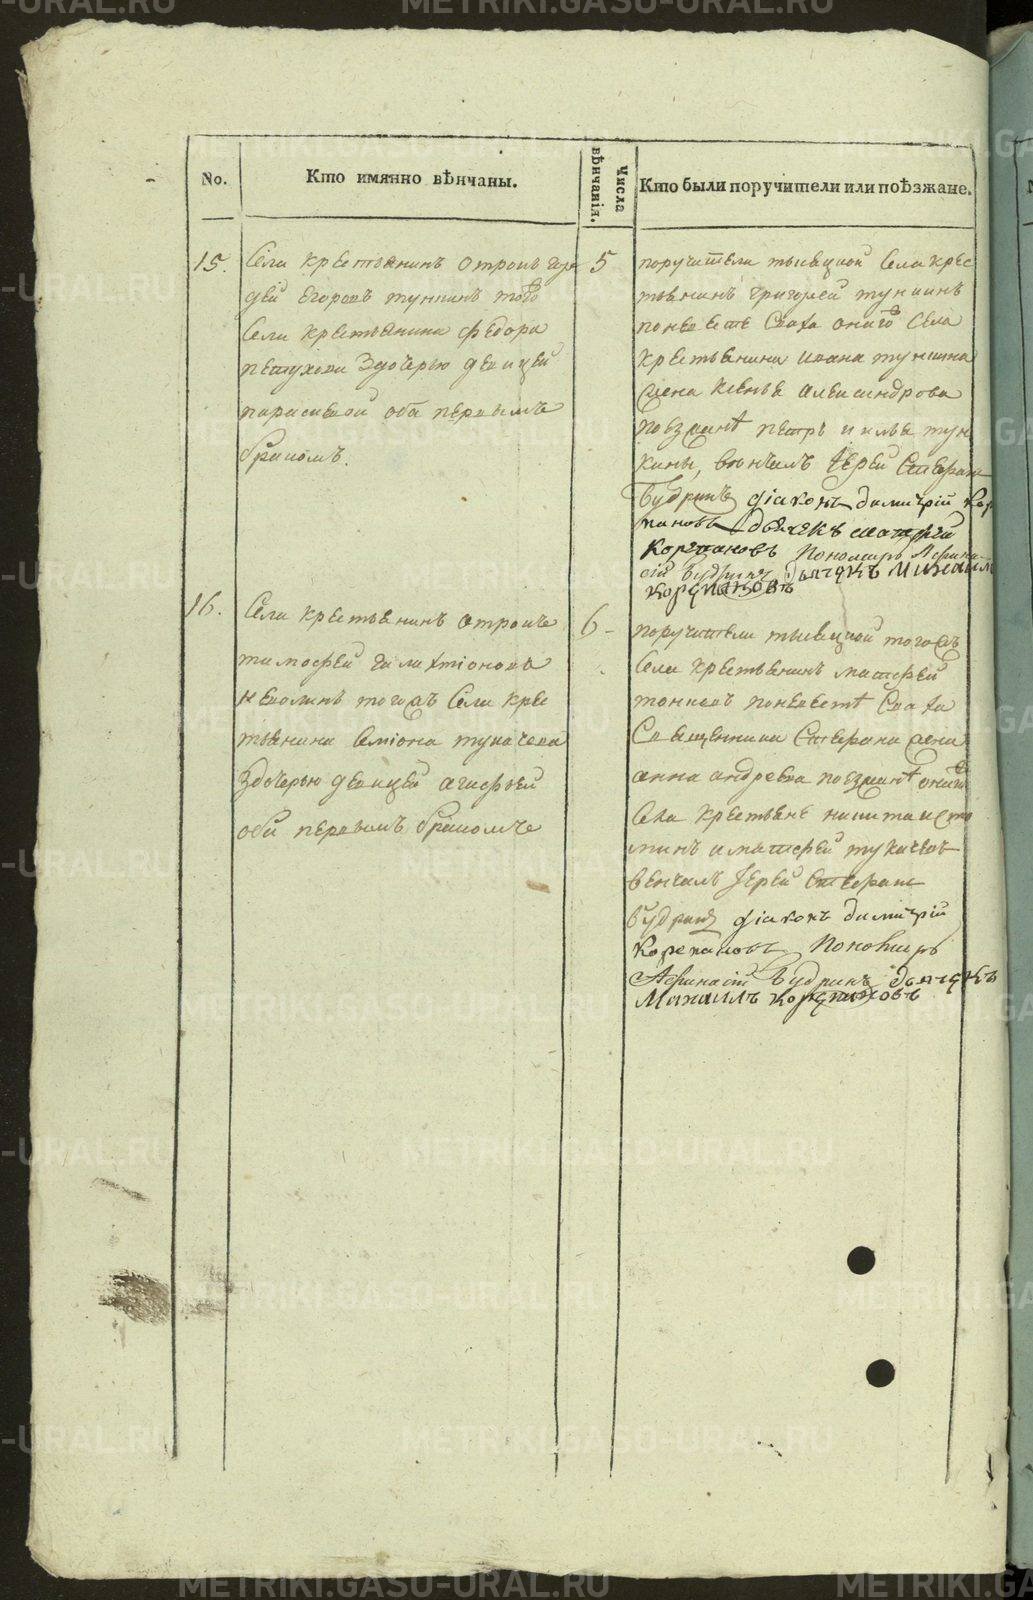 No.
Кто имянно вѣнчаны.
Числа вѣнчанія.
Кто были поручители или поѣзжане.
15.
Села крестьянинъ отрокъ
дей Егоровъ тункинъ того
Села крестьянина федора
петухова Здочерью девицей
параскевой оба первымъ
бракомъ.
5
поручители тысяцкой Села крес
тьянинъ григорей тункинъ
поневесте Сваха онаго Села
крестьянина ивана тункина
жена ксенья александрова
поезжанѣ петръ и илья тун
кины, венчалъ Іерей Стефанъ
Будринъ діаконъ димитрій Кор
пановъ дьячекъ матфей
Корепановъ Пономарь Афана
сій Будринъ Дьячекъ Михаилъ
корепановъ
16.
Села крестьянинъ отрокъ
тимофей галактіоновъ
неволинъ тогожъ Села крес
тьянина Семіона тукачева
Здочерью девицей агафьей
оба первымъ бракомъ
6
поручители тысяцкой тогожъ
Села крестьянинъ матфей
поневестѣ Сваха
Священника Стефана жена
анна андреева поезжанѣ онаго
Села крестьяне никита исто
минъ и матфей тукачевъ
венчалъ Іерей Стефанъ
Будринъ діаконъ димитрій
Корепановъ Пономарь
Афанасій Будринъ Дьячекъ
Михаилъ Корепановъ
METRIKI.GASO-URAL.RU